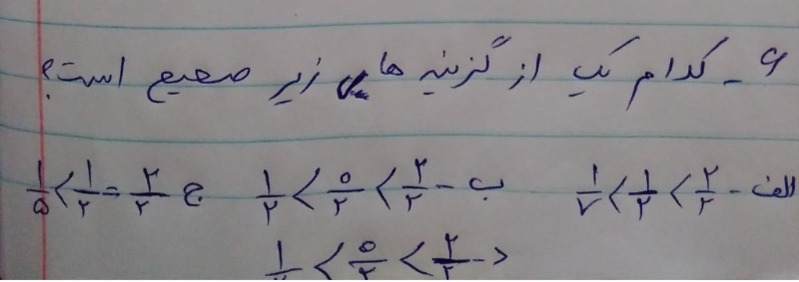 ۶ - کدام یک از گزینه های زیر صحیح است؟
الف - ۱/۷ < ۱/۲ < ۲/۲ ب - ۱/۲ < ۵/۲ < ۲/۲ ج ۱/۵ < ۱/۲ = ۲/۲
د - ۱/۷ < ۵/۲ < ۲/۲